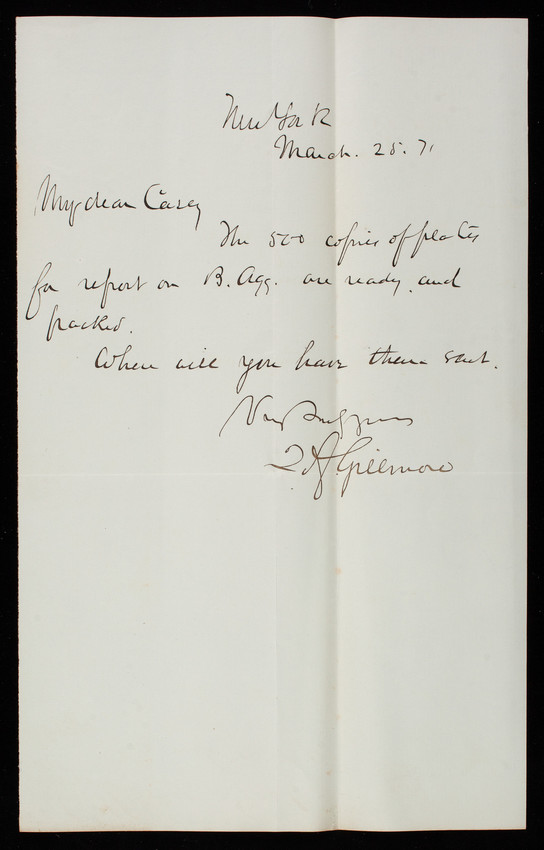 New York
March. 25. 71
My dear Casey
The 500 copies of plates
for report on B. Agg. are ready and
packed.
When will you have them sent.
Very truly yours
Q A Gillmore